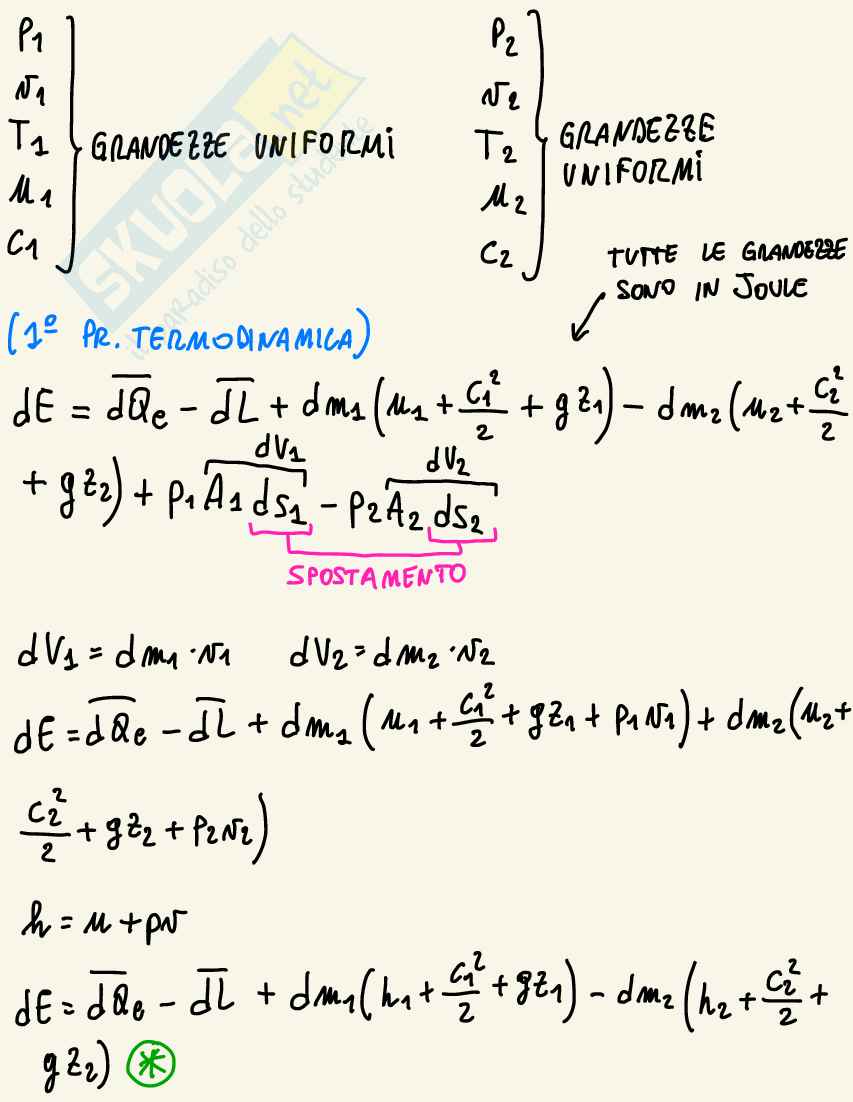 P1
v1
T1
u1
C1
GRANDEZZE UNIFORMI
P2
v2
T2
u2
C2
GRANDEZZE
UNIFORMI
TUTTE LE GRANDEZZE
SONO IN JOULE
SKUOLA.net
il paradiso dello studente
(1º PR. TERMODINAMICA)
dE = d̅Q̅e - d̅L̅ + dm1(u1 + C1²/2 + gz1) - dm2(u2 + C2²/2
+ gz2) + p1 A1 ds1 - p2 A2 ds2
dV1 dV2
SPOSTAMENTO
dV1 = dm1 · v1 dV2 = dm2 · v2
dE = d̅Q̅e - d̅L̅ + dm1(u1 + C1²/2 + gz1 + p1v1) + dm2(u2 +
C2²/2 + gz2 + p2v2)
h = u + pv
dE = d̅Q̅e - d̅L̅ + dm1(h1 + C1²/2 + gz1) - dm2(h2 + C2²/2 +
gz2) *